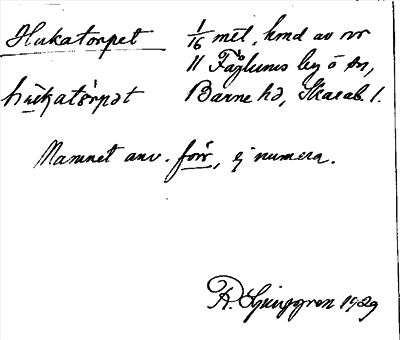 Hukatorpet 1/16 mtl, hmd av nr
11 Fåglums by o sn,
hùkatår̀pət Barne hd, Skarab. l.
Namnet anv. förr, ej numera.
R. Ljunggren 1929